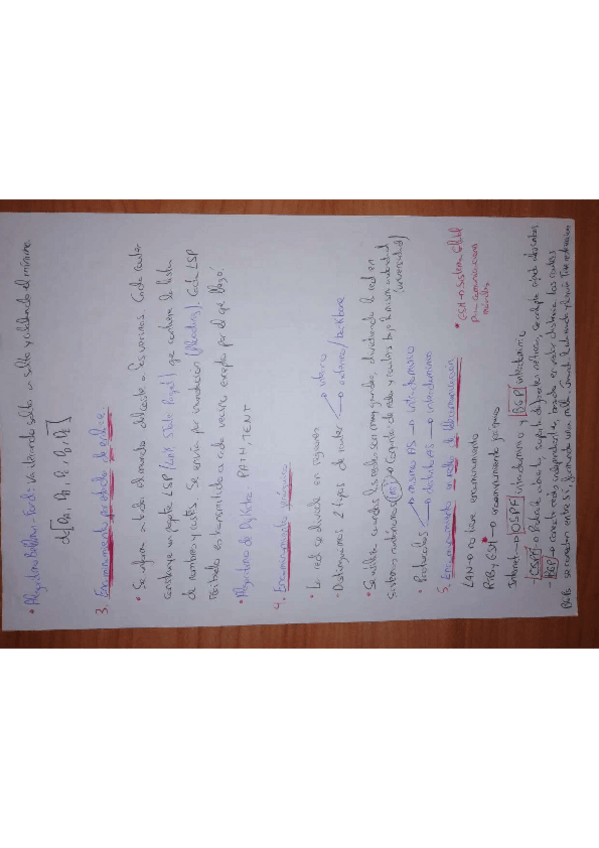 • Algoritmo Bellman-Ford: va iterando salto a salto y calculando el mínimo.
3. Encaminamiento por estado de enlace.
• Se informa a todo el mundo del coste a los vecinos. Cada router
construye un paquete LSP (Link State Packet) que contiene la lista
de nombres y costes. Se envía por inundación (flooding). Cada LSP
recibido es transmitido a cada vecino excepto por el que llegó.
• Algoritmo de Dijkstra. PATH, TENT
4. Encaminamiento jerárquico
• La red se divide en regiones
- Distinguimos 2 tipos de router → interno
→ externo/backbone
• Se utiliza cuando las redes son muy grandes, dividiendo la red en
sistemas autónomos (AS) → Conjunto de redes y routers bajo la misma autoridad
(universidad)
• Protocolos → mismo AS → intradominio
→ distinto AS → interdominio
5. Encaminamiento en redes de telecomunicación
LAN → no tiene encaminamiento
RTB y GSM* → encaminamiento jerárquico
* GSM → Sistema Global
para comunicaciones
móviles
Internet → OSPF intradominio y BGP interdominio
- OSPF → Protocolo abierto, soporta diferentes métricas, se adapta
- BGP → conecta redes independientes, basado en vector distancia. Los routers
BGP se conectan entre sí, formando una malla